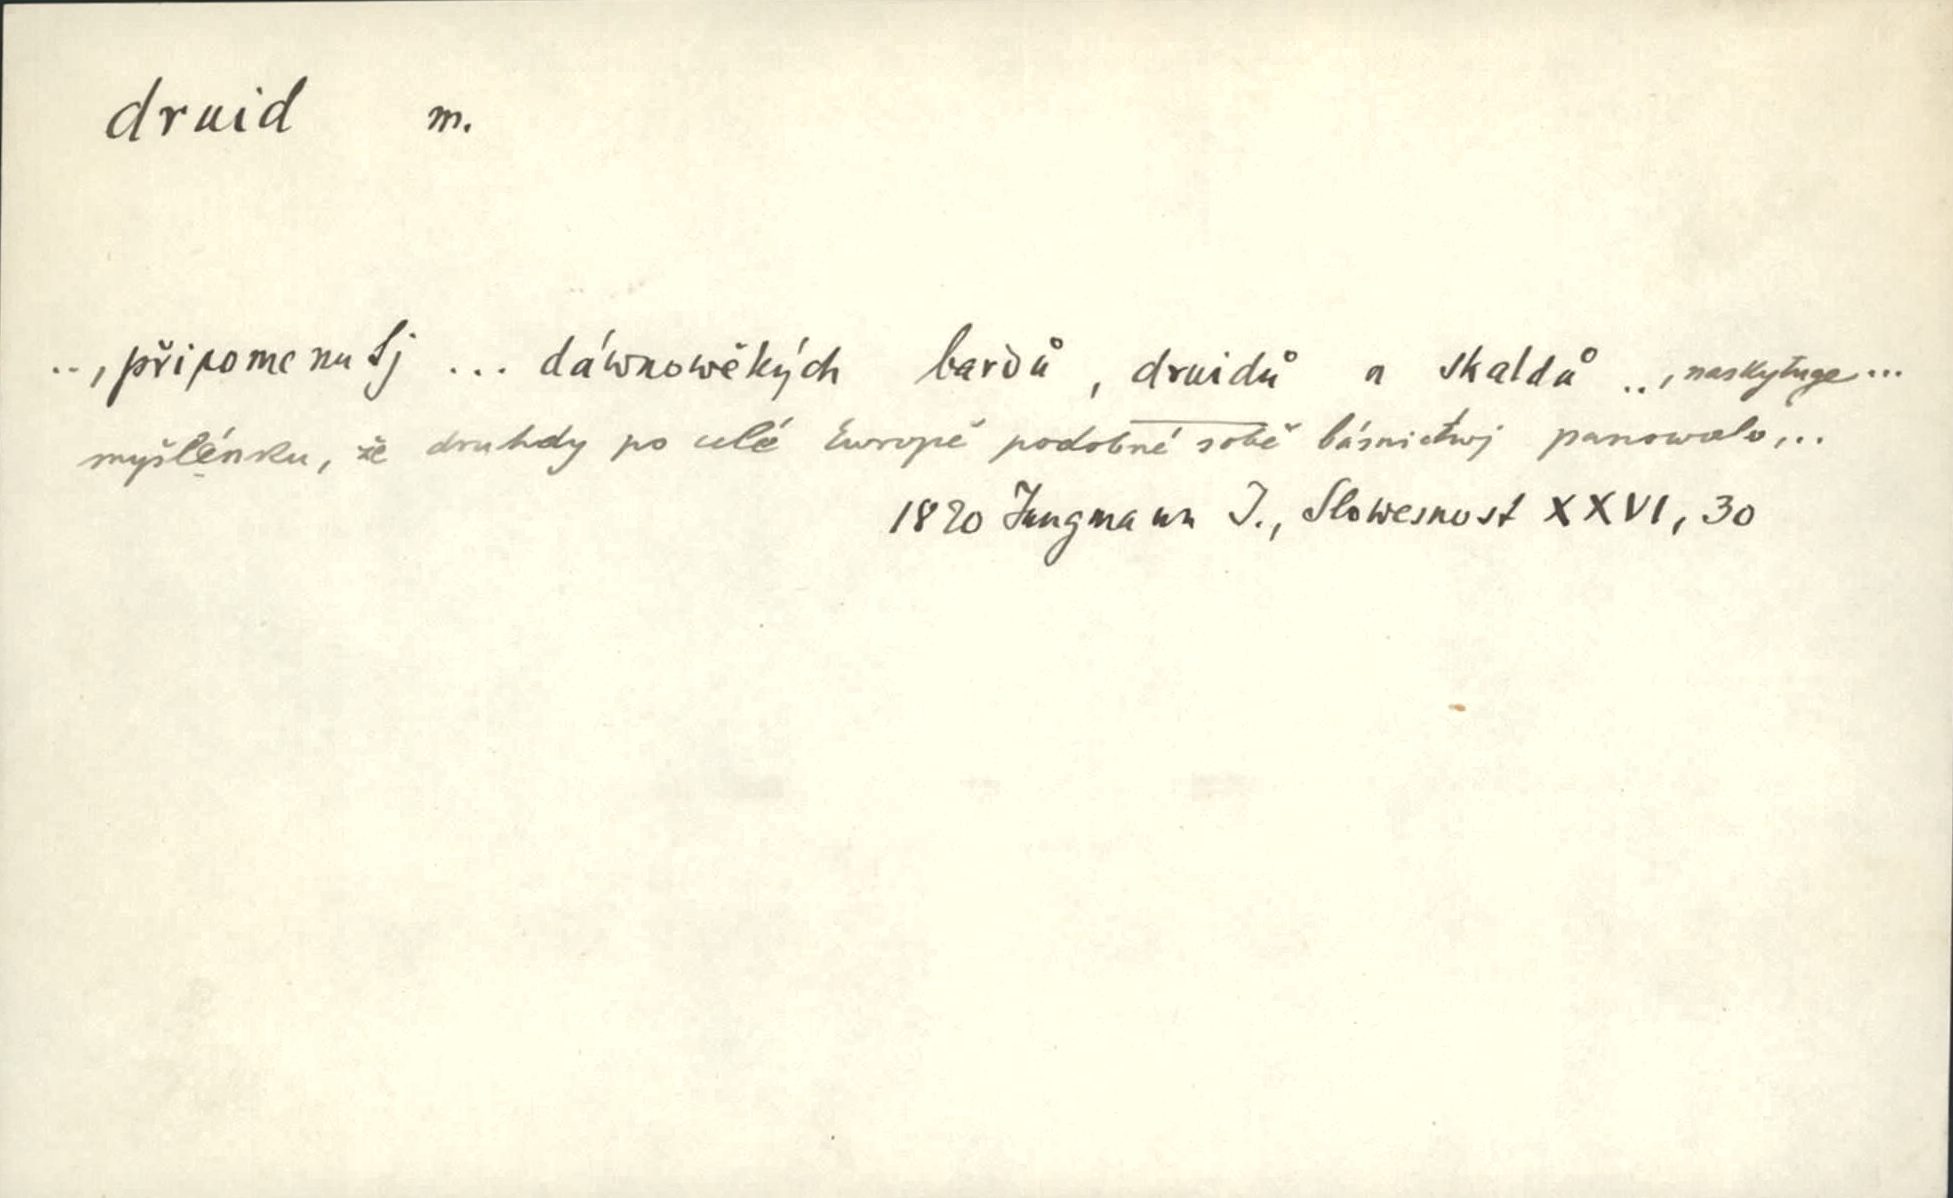 druid m.
.., připomenutj ... dáwnowěkých bardů, druidů a skaldů .., naskytuge ...
myšlénku, že druhdy po celé Europě podobné sobě básnictwj panowalo, ..
1820 Jungmann J., Slowesnost XXVI, 30